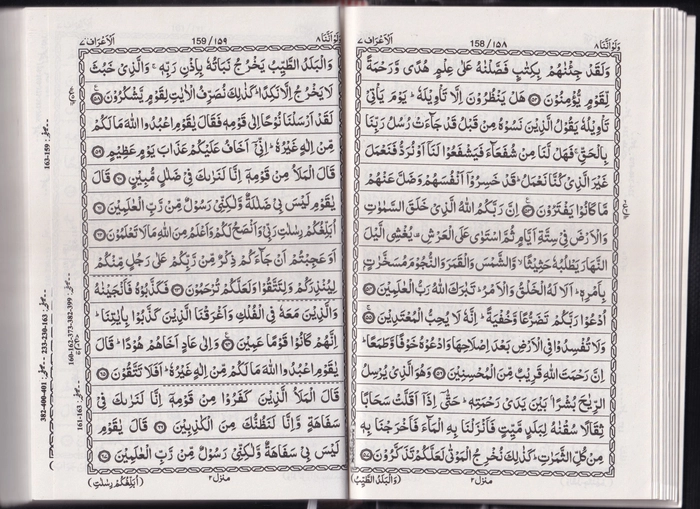 وَلَوْ اَنَّنَا ٨
158 / ١٥٨
اَلْاَعْرَاف ٧
وَلَقَدْ جِئْنٰهُمْ بِكِتٰبٍ فَصَّلْنٰهُ عَلٰى عِلْمٍ هُدًى وَّرَحْمَةً
لِّقَوْمٍ يُّؤْمِنُوْنَ ۝٥٢ هَلْ يَنْظُرُوْنَ اِلَّا تَاْوِيْلَهٗ ؕ يَوْمَ يَاْتِيْ
تَاْوِيْلُهٗ يَقُوْلُ الَّذِيْنَ نَسُوْهُ مِنْ قَبْلُ قَدْ جَآءَتْ رُسُلُ رَبِّنَا
بِالْحَقِّ ۚ فَهَلْ لَّنَا مِنْ شُفَعَآءَ فَيَشْفَعُوْا لَنَاۤ اَوْ نُرَدُّ فَنَعْمَلَ
غَيْرَ الَّذِيْ كُنَّا نَعْمَلُ ؕ قَدْ خَسِرُوْۤا اَنْفُسَهُمْ وَضَلَّ عَنْهُمْ
مَّا كَانُوْا يَفْتَرُوْنَ ۝٥٣ اِنَّ رَبَّكُمُ اللّٰهُ الَّذِيْ خَلَقَ السَّمٰوٰتِ
وَالْاَرْضَ فِيْ سِتَّةِ اَيَّامٍ ثُمَّ اسْتَوٰى عَلَى الْعَرْشِ ۫ يُغْشِي الَّيْلَ
النَّهَارَ يَطْلُبُهٗ حَثِيْثًا ۙ وَّالشَّمْسَ وَالْقَمَرَ وَالنُّجُوْمَ مُسَخَّرٰتٍۭ
بِاَمْرِهٖ ؕ اَلَا لَهُ الْخَلْقُ وَالْاَمْرُ ؕ تَبٰرَكَ اللّٰهُ رَبُّ الْعٰلَمِيْنَ ۝٥٤
اُدْعُوْا رَبَّكُمْ تَضَرُّعًا وَّخُفْيَةً ؕ اِنَّهٗ لَا يُحِبُّ الْمُعْتَدِيْنَ ۝٥٥
وَلَا تُفْسِدُوْا فِي الْاَرْضِ بَعْدَ اِصْلَاحِهَا وَادْعُوْهُ خَوْفًا وَّطَمَعًا ؕ
اِنَّ رَحْمَتَ اللّٰهِ قَرِيْبٌ مِّنَ الْمُحْسِنِيْنَ ۝٥٦ وَهُوَ الَّذِيْ يُرْسِلُ
الرِّيٰحَ بُشْرًۢا بَيْنَ يَدَيْ رَحْمَتِهٖ ؕ حَتّٰۤى اِذَاۤ اَقَلَّتْ سَحَابًا
ثِقَالًا سُقْنٰهُ لِبَلَدٍ مَّيِّتٍ فَاَنْزَلْنَا بِهِ الْمَآءَ فَاَخْرَجْنَا بِهٖ
مِنْ كُلِّ الثَّمَرٰتِ ؕ كَذٰلِكَ نُخْرِجُ الْمَوْتٰى لَعَلَّكُمْ تَذَكَّرُوْنَ ۝٥٧
منزل ٢
(وَالْبَلَدُ الطَّيِّبُ)
وَلَوْ اَنَّنَا ٨
159 / ١٥٩
اَلْاَعْرَاف ٧
وَالْبَلَدُ الطَّيِّبُ يَخْرُجُ نَبَاتُهٗ بِاِذْنِ رَبِّهٖ ۚ وَالَّذِيْ خَبُثَ
لَا يَخْرُجُ اِلَّا نَكِدًا ؕ كَذٰلِكَ نُصَرِّفُ الْاٰيٰتِ لِقَوْمٍ يَّشْكُرُوْنَ ۝٥٨
لَقَدْ اَرْسَلْنَا نُوْحًا اِلٰى قَوْمِهٖ فَقَالَ يٰقَوْمِ اعْبُدُوا اللّٰهَ مَا لَكُمْ
مِّنْ اِلٰهٍ غَيْرُهٗ ؕ اِنِّيْۤ اَخَافُ عَلَيْكُمْ عَذَابَ يَوْمٍ عَظِيْمٍ ۝٥٩
قَالَ الْمَلَاُ مِنْ قَوْمِهٖۤ اِنَّا لَنَرٰىكَ فِيْ ضَلٰلٍ مُّبِيْنٍ ۝٦٠ قَالَ
يٰقَوْمِ لَيْسَ بِيْ ضَلٰلَةٌ وَّلٰكِنِّيْ رَسُوْلٌ مِّنْ رَّبِّ الْعٰلَمِيْنَ ۝٦١
اُبَلِّغُكُمْ رِسٰلٰتِ رَبِّيْ وَاَنْصَحُ لَكُمْ وَاَعْلَمُ مِنَ اللّٰهِ مَا لَا تَعْلَمُوْنَ ۝٦٢
اَوَعَجِبْتُمْ اَنْ جَآءَكُمْ ذِكْرٌ مِّنْ رَّبِّكُمْ عَلٰى رَجُلٍ مِّنْكُمْ
لِيُنْذِرَكُمْ وَلِتَتَّقُوْا وَلَعَلَّكُمْ تُرْحَمُوْنَ ۝٦٣ فَكَذَّبُوْهُ فَاَنْجَيْنٰهُ
وَالَّذِيْنَ مَعَهٗ فِي الْفُلْكِ وَاَغْرَقْنَا الَّذِيْنَ كَذَّبُوْا بِاٰيٰتِنَا ؕ
اِنَّهُمْ كَانُوْا قَوْمًا عَمِيْنَ ۝٦٤ وَاِلٰى عَادٍ اَخَاهُمْ هُوْدًا ؕ قَالَ
يٰقَوْمِ اعْبُدُوا اللّٰهَ مَا لَكُمْ مِّنْ اِلٰهٍ غَيْرُهٗ ؕ اَفَلَا تَتَّقُوْنَ ۝٦٥
قَالَ الْمَلَاُ الَّذِيْنَ كَفَرُوْا مِنْ قَوْمِهٖۤ اِنَّا لَنَرٰىكَ فِيْ
سَفَاهَةٍ وَّاِنَّا لَنَظُنُّكَ مِنَ الْكٰذِبِيْنَ ۝٦٦ قَالَ يٰقَوْمِ
لَيْسَ بِيْ سَفَاهَةٌ وَّلٰكِنِّيْ رَسُوْلٌ مِّنْ رَّبِّ الْعٰلَمِيْنَ ۝٦٧
منزل ٢
(اُبَلِّغُكُمْ رِسٰلٰتِ)
163-159
160-162-373-382-399
233-230-163
382-400-401
161-163